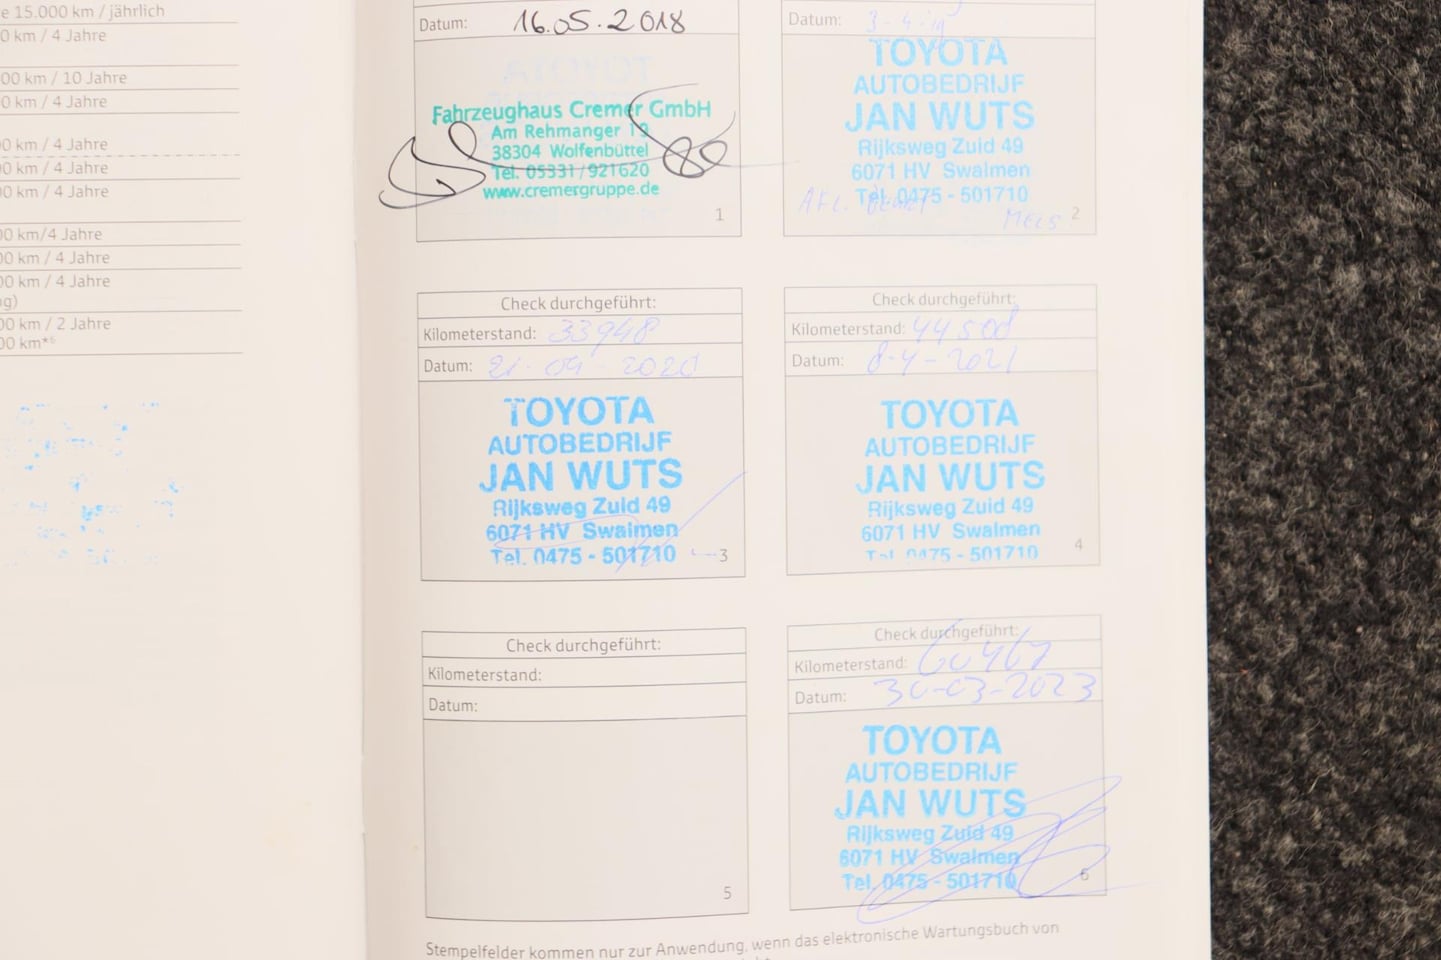 e 15.000 km / jährlich
0 km / 4 Jahre
00 km / 10 Jahre
0 km / 4 Jahre
0 km / 4 Jahre
0 km / 4 Jahre
0 km / 4 Jahre
00 km/4 Jahre
00 km / 4 Jahre
00 km / 4 Jahre
ng)
00 km / 2 Jahre
00 km*⁶
Datum: 16.05.2018
Fahrzeughaus Cremer GmbH
Am Rehmanger 19
38304 Wolfenbüttel
Tel. 05331/921620
www.cremergruppe.de
1
Datum: 3-4-19
TOYOTA
AUTOBEDRIJF
JAN WUTS
Rijksweg Zuid 49
6071 HV Swalmen
Tel. 0475 - 501710
2
Check durchgeführt:
Kilometerstand: 33948
Datum: 21-09-2020
TOYOTA
AUTOBEDRIJF
JAN WUTS
Rijksweg Zuid 49
6071 HV Swalmen
Tel. 0475 - 501710
3
Check durchgeführt:
Kilometerstand: 44508
Datum: 8-4-2021
TOYOTA
AUTOBEDRIJF
JAN WUTS
Rijksweg Zuid 49
6071 HV Swalmen
Tel. 0475 - 501710
4
Check durchgeführt:
Kilometerstand:
Datum:
5
Check durchgeführt:
Kilometerstand: 60467
Datum: 30-03-2023
TOYOTA
AUTOBEDRIJF
JAN WUTS
Rijksweg Zuid 49
6071 HV Swalmen
Tel. 0475 - 501710
6
Stempelfelder kommen nur zur Anwendung, wenn das elektronische Wartungsbuch von